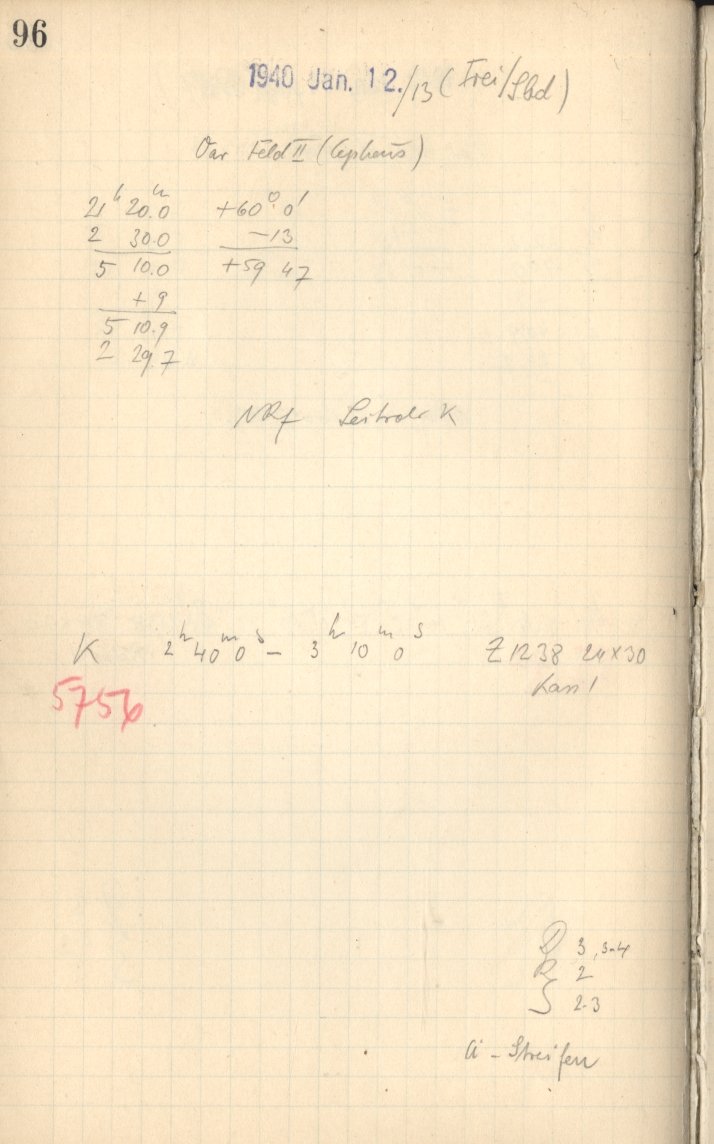 96
1940 Jan. 12./13 (Frei/Sbd)
Var Feld II (Cepheus)
21h 20.0m +60° 0'
2 30.0 -13
5 10.0 +59 47
+ 9
5 10.9
2 29.7
NRf Leitrohr K
K 2h 40m 0s – 3h 10m 0s Z 1238 24x30
5756 Kass 1
D 3, 3-4
R 2
S 2-3
Ci - Streifen